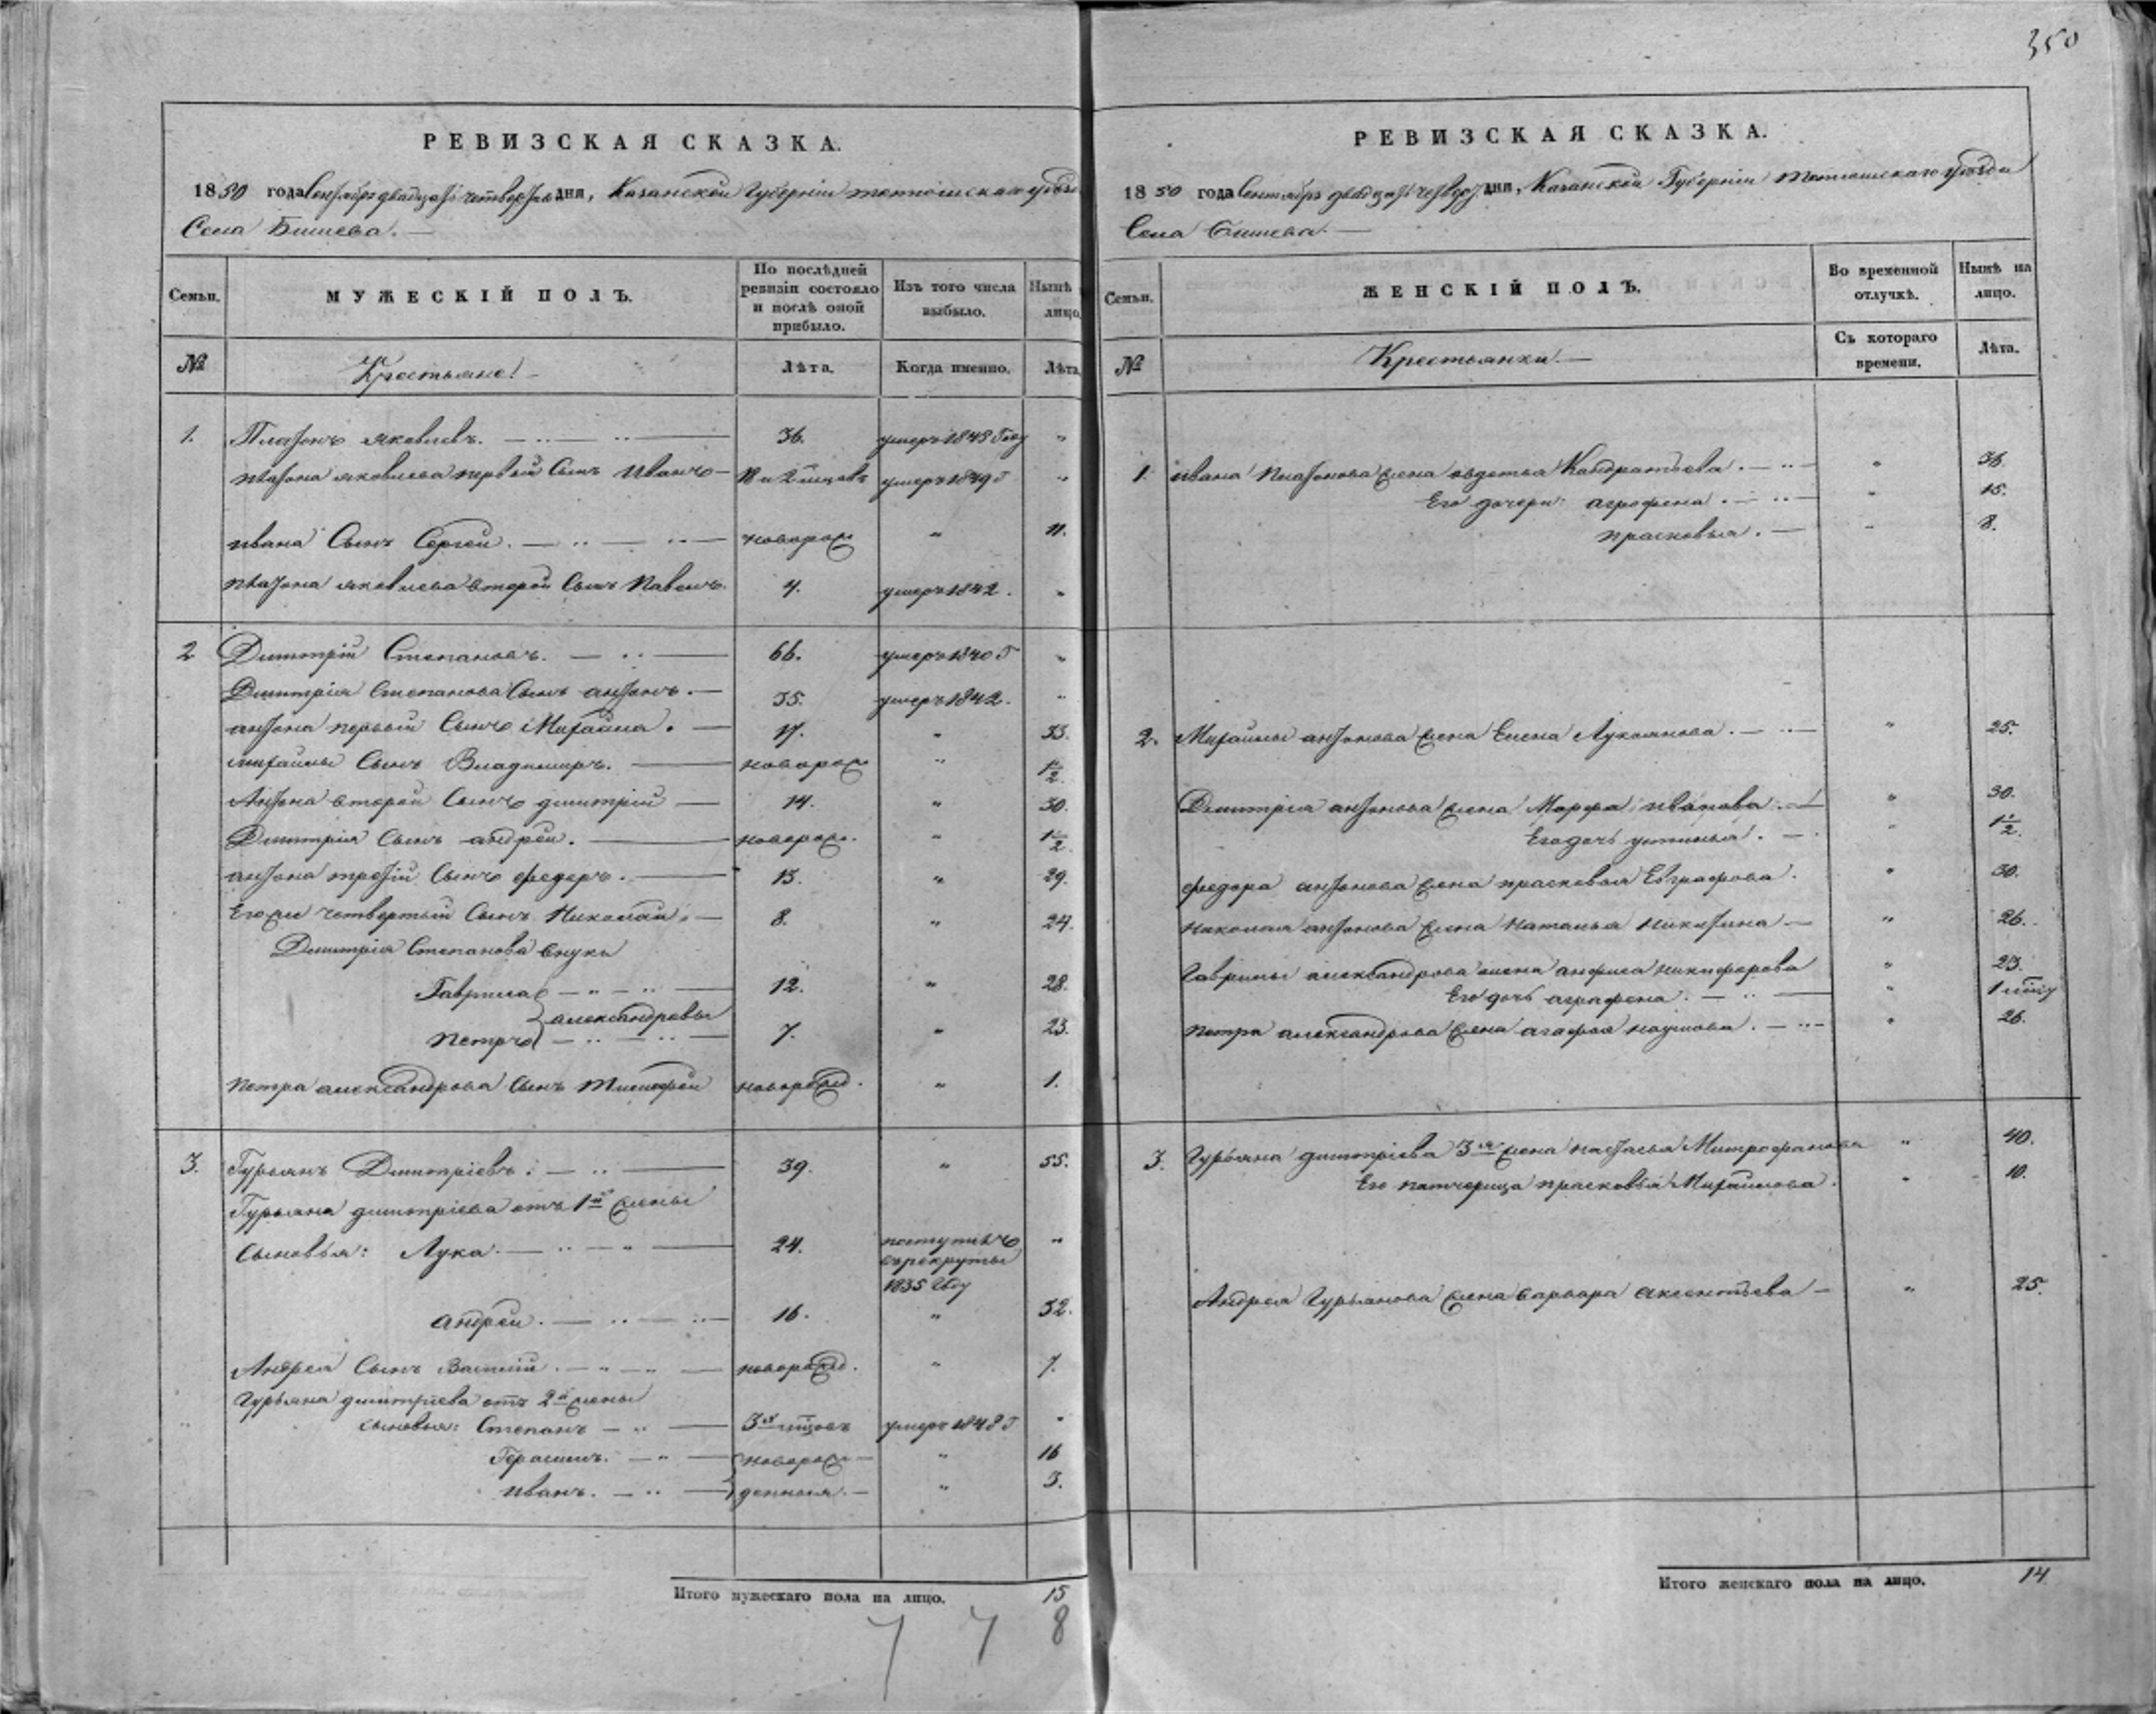 350
РЕВИЗСКАЯ СКАЗКА.
1850 года Сентября двадцать четвертаго дня, Казанской Губернии Тетюшскаго уезда
Села Бишева. —
Семьи.
МУЖЕСКІЙ ПОЛЪ.
По послѣдней ревизіи состояло и послѣ оной прибыло.
Изъ того числа выбыло.
Нынѣ лицо.
№
Крестьяне! —
Лѣта.
Когда именно.
Лѣта
1. Платонъ яковлевъ. 36. умеръ 1845 Году "
платона яковлева первый Сынъ Иванъ 18 и 2 месцовъ умеръ 1849 г "
ивана Сынъ Сергей. новорож " 11.
платона яковлева второй Сынъ Павелъ 4. умеръ 1842. "
2 Дмитрій Степановъ. 66. умеръ 1840 г "
Дмитрія Степанова Сынъ антонъ. 35. умеръ 1842. "
антона первый Сынъ Михайла. 17. " 33.
михайлы Сынъ Владимиръ. новорож " 1/2
Антона второй Сынъ дмитрій 14. " 30.
Дмитрія Сынъ андрей. новорож. " 1 1/2
антона третій Сынъ федоръ. 13. " 29.
Его же четвертый Сынъ Николай 8. " 24.
Дмитрія Степанова внуки
Гаврила 12. " 28.
александровы
петръ 7. " 23.
петра александрова Сынъ Тимофей новорожд. " 1.
3. Гурьянъ Дмитріевъ. 39. " 55.
Гурьяна дмитріева отъ 1й жены
Сыновья: Лука. 24. поступилъ "
въ рекруты
1835 Году
андрей. 16. " 32.
Андрея Сынъ Василій. новорожд. " 7.
Гурьяна дмитріева отъ 2й жены
сыновья: Степанъ 3х месцовъ умеръ 1848 г "
Герасимъ. новорож " 16
иванъ. денныя. " 3.
Итого мужескаго пола на лицо. 15
7 7 8
РЕВИЗСКАЯ СКАЗКА.
1850 года Сентября двадцать четверт дня, Казанской Губерніи Тетюшскаго уезда
Села Бишева. —
Семьи.
ЖЕНСКІЙ ПОЛЪ.
Во временной отлучкѣ.
Нынѣ на лицо.
№
Крестьянки —
Съ котораго времени.
Лѣта.
1. ивана платонова жена авдотья Кандратьева. " 36.
Его дочери: агрофена. " 15.
прасковья. " 8.
2. Михайлы антонова жена Елена Лукоянова. " 25.
Дмитрія антонова жена Марфа иванова. " 30.
Его дочь устинья. " 1 1/2.
федора антонова жена прасковья Евграфова. " 30.
николая антонова жена Наталья никитина " 26.
Гаврилы александрова жена анфиса никифорова " 23.
Его дочь аграфена. "
петра александрова жена агафья наумова. " 26.
3. Гурьяна дмитріева 3я жена настасья Митрофанова " 40.
Его патчерица прасковья Михайлова. " 10.
Андрея Гурьянова жена варвара аксентьева " 25.
Итого женскаго пола на лицо. 14